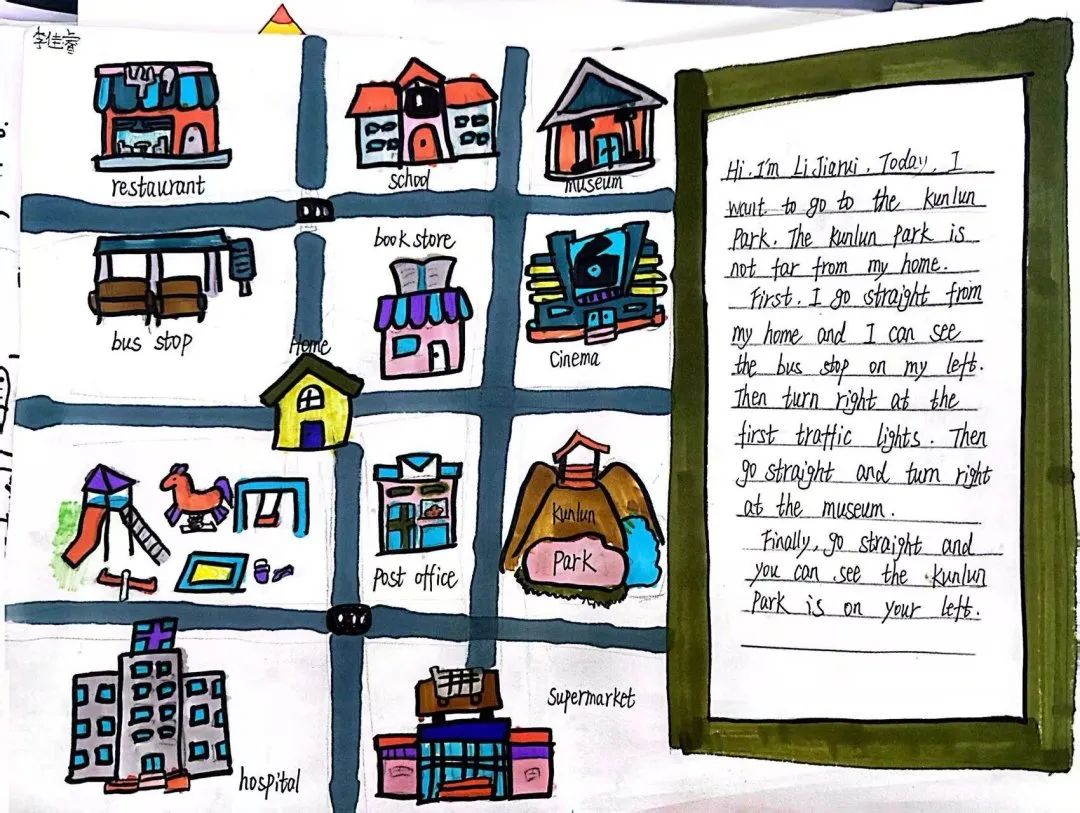 李佳睿
restaurant
school
museum
bus stop
book store
Cinema
Home
post office
Kunlun
Park
hospital
Supermarket
Hi. I'm Li Jiarui. Today, I
want to go to the Kunlun
Park. The Kunlun Park is
not far from my home.
First. I go straight from
my home and I can see
the bus stop on my left.
Then turn right at the
first traffic lights. Then
go straight and turn right
at the museum.
Finally, go straight and
you can see the Kunlun
Park is on your left.